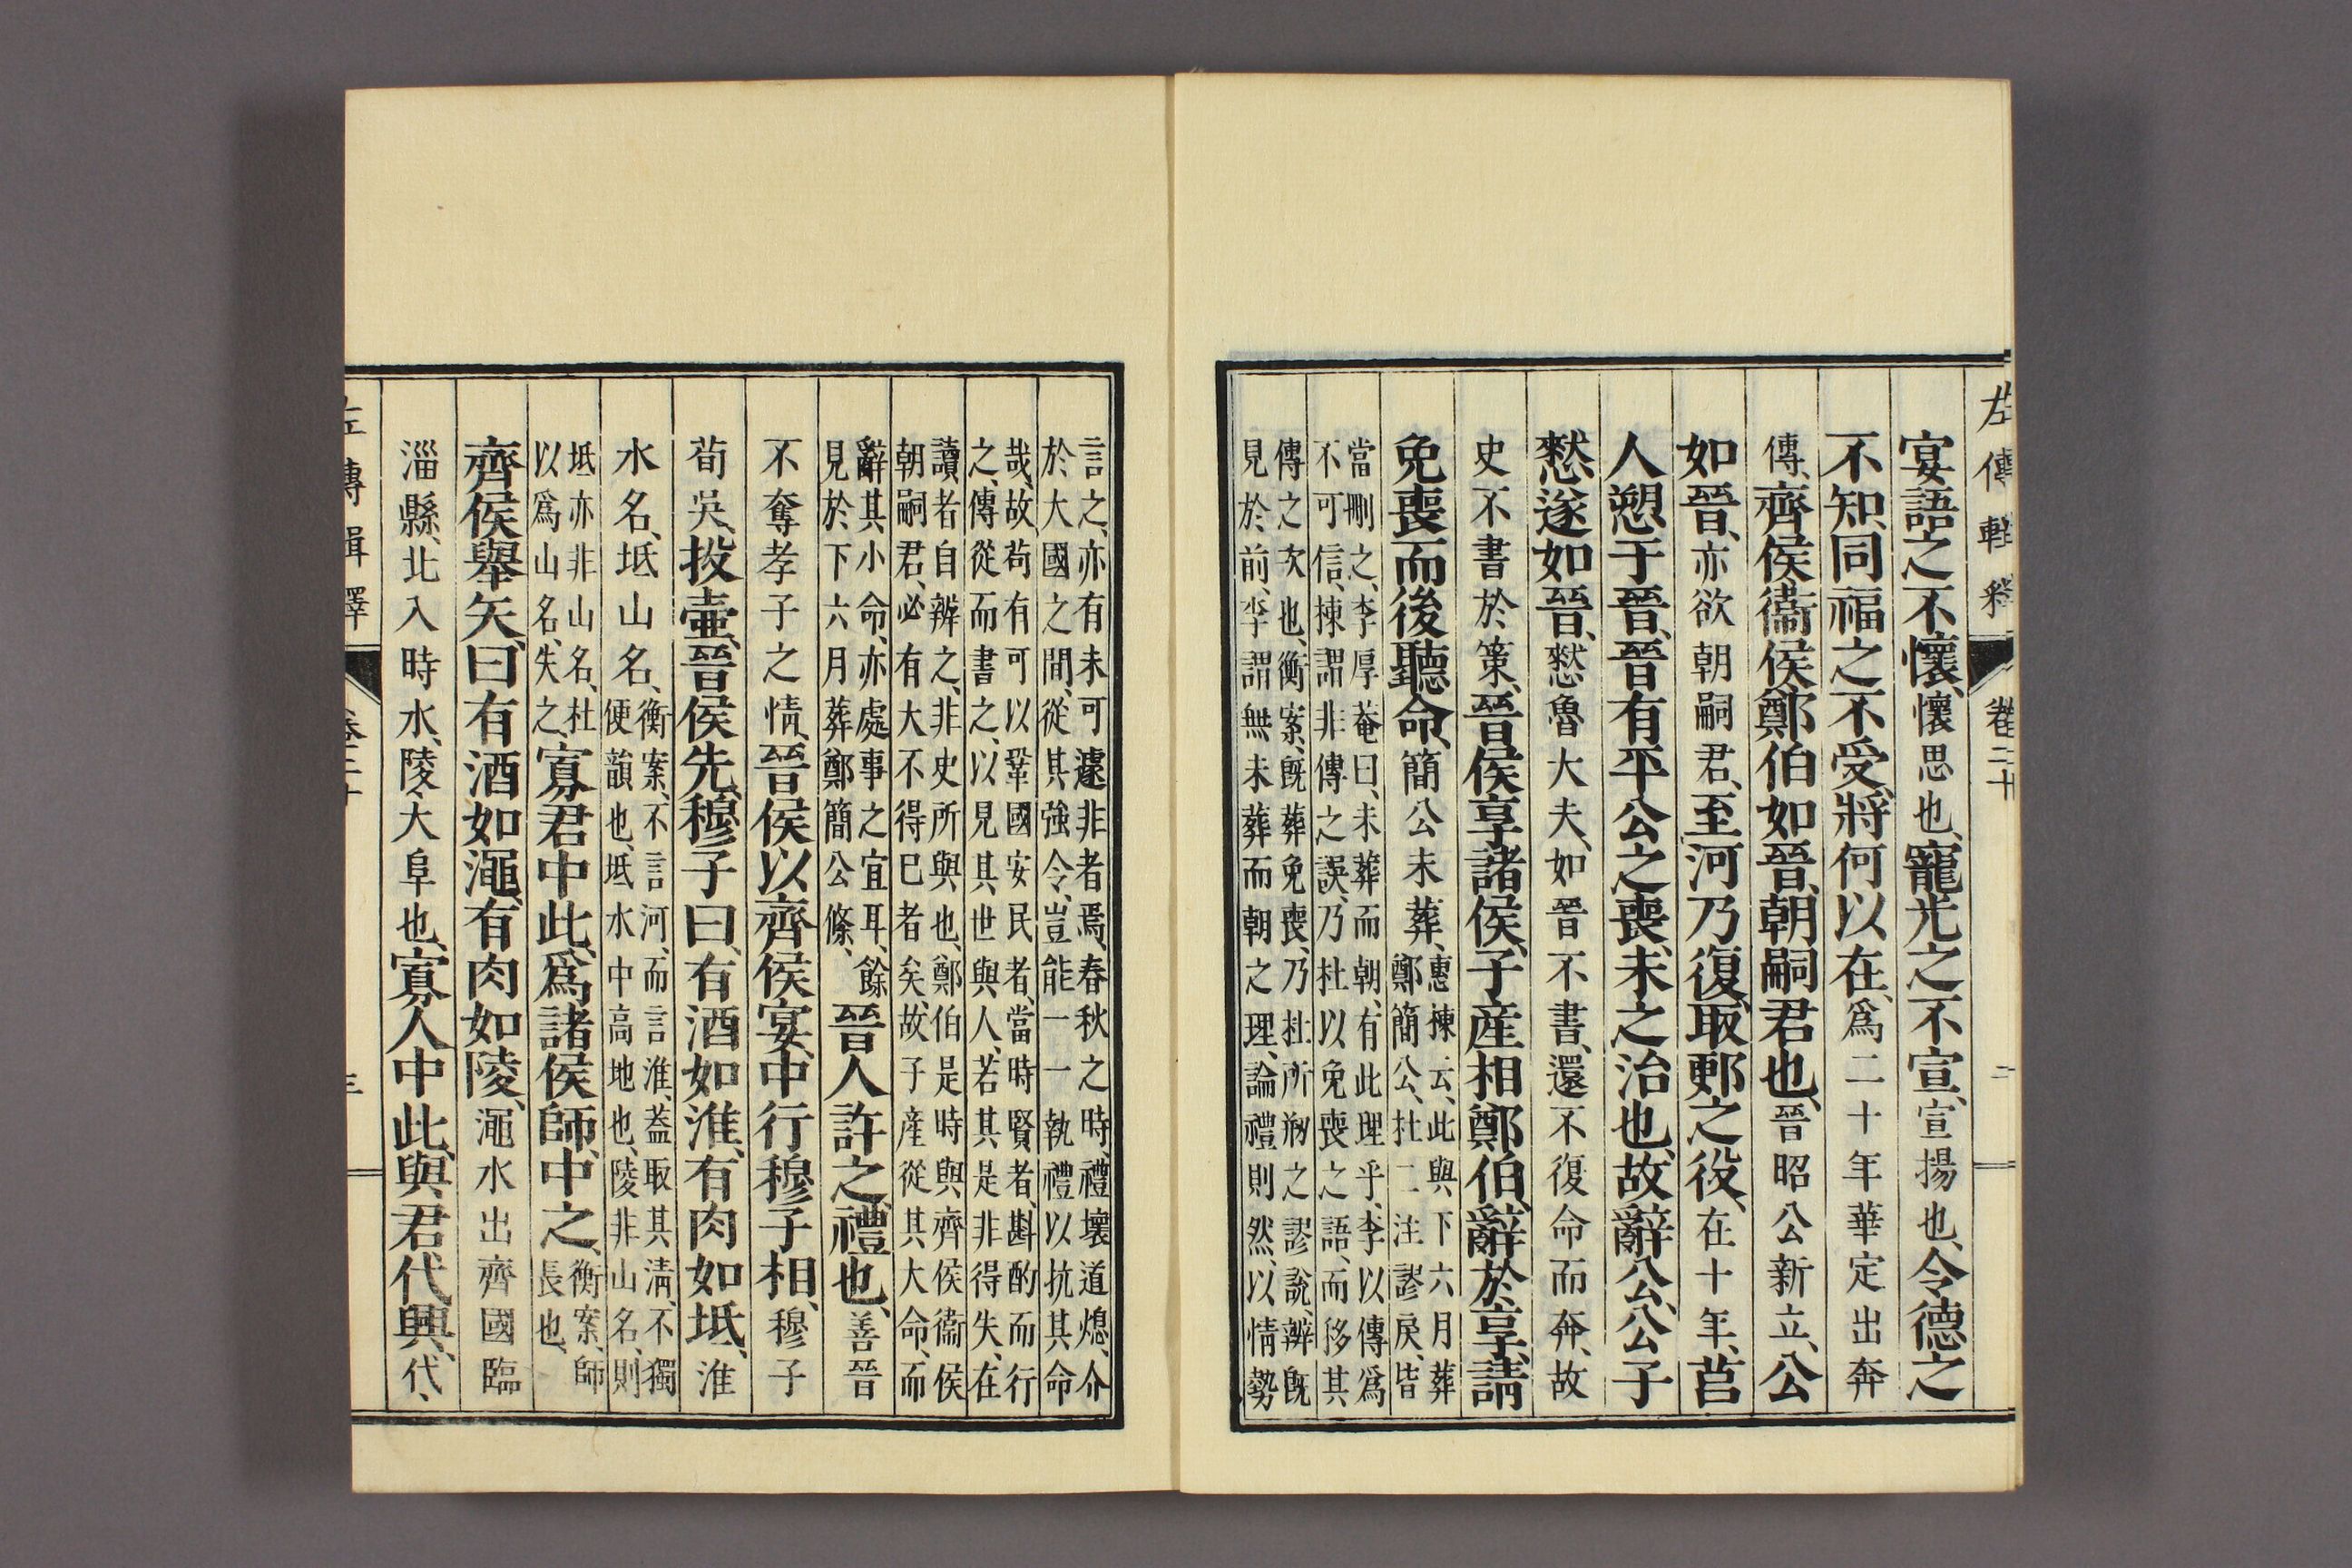 左傳輯釋 卷二十 二
宴語之不懷、懷思也、寵光之不宣、宣揚也、令德之
不知、同福之不受、將何以在、爲二十年華定出奔
傳、齊侯衞侯鄭伯如晉、朝嗣君也、晉昭公新立、公
如晉、亦欲朝嗣君、至河乃復、取郠之役、在十年、莒
人愬于晉、晉有平公之喪、未之治也、故辭公、公子
憖遂如晉、憖魯大夫、如晉不書、還不復命而奔、故
史不書於策、晉侯享諸侯、子產相鄭伯、辭於享、請
免喪而後聽命、簡公未葬、惠棟云、此與下六月葬
鄭簡公、杜二注謬戾、皆
當刪之、李厚菴曰、未葬而朝、有此理乎、李以傳爲
不可信、棟謂非傳之誤、乃杜以免喪之語、而移其
傳之次也、衡案、旣葬免喪、乃杜所刱之謬說、辨旣
見於前、李謂無未葬而朝之理、論禮則然、以情勢
言之、亦有未可遽非者焉、春秋之時、禮壞道熄、介
於大國之間、從其強令、豈能一一執禮以抗其命
哉、故苟有可以鞏國安民者、當時賢者、斟酌而行
之、傳從而書之、以見其世與人、若其是非得失、在
讀者自辨之、非史所與也、鄭伯是時與齊侯衞侯
朝嗣君、必有大不得已者矣、故子產從其大命、而
辭其小命、亦處事之宜耳、餘
見於下六月葬鄭簡公條、晉人許之、禮也、善晉
不奪孝子之情、晉侯以齊侯宴、中行穆子相、穆子
荀吳、投壺、晉侯先、穆子曰、有酒如淮、有肉如坻、淮
水名、坻山名、衡案、不言河、而言淮、蓋取其淸、不獨
便韻也、坻水中高地也、陵非山名、則
坻亦非山名、杜
以爲山名、失之、寡君中此、爲諸侯師、中之、衡案、師
長也、
齊侯舉矢、曰有酒如澠、有肉如陵、澠水出齊國臨
淄縣、北入時水、陵、大阜也、寡人中此、與君代興、代、
左傳輯釋 卷二十 三